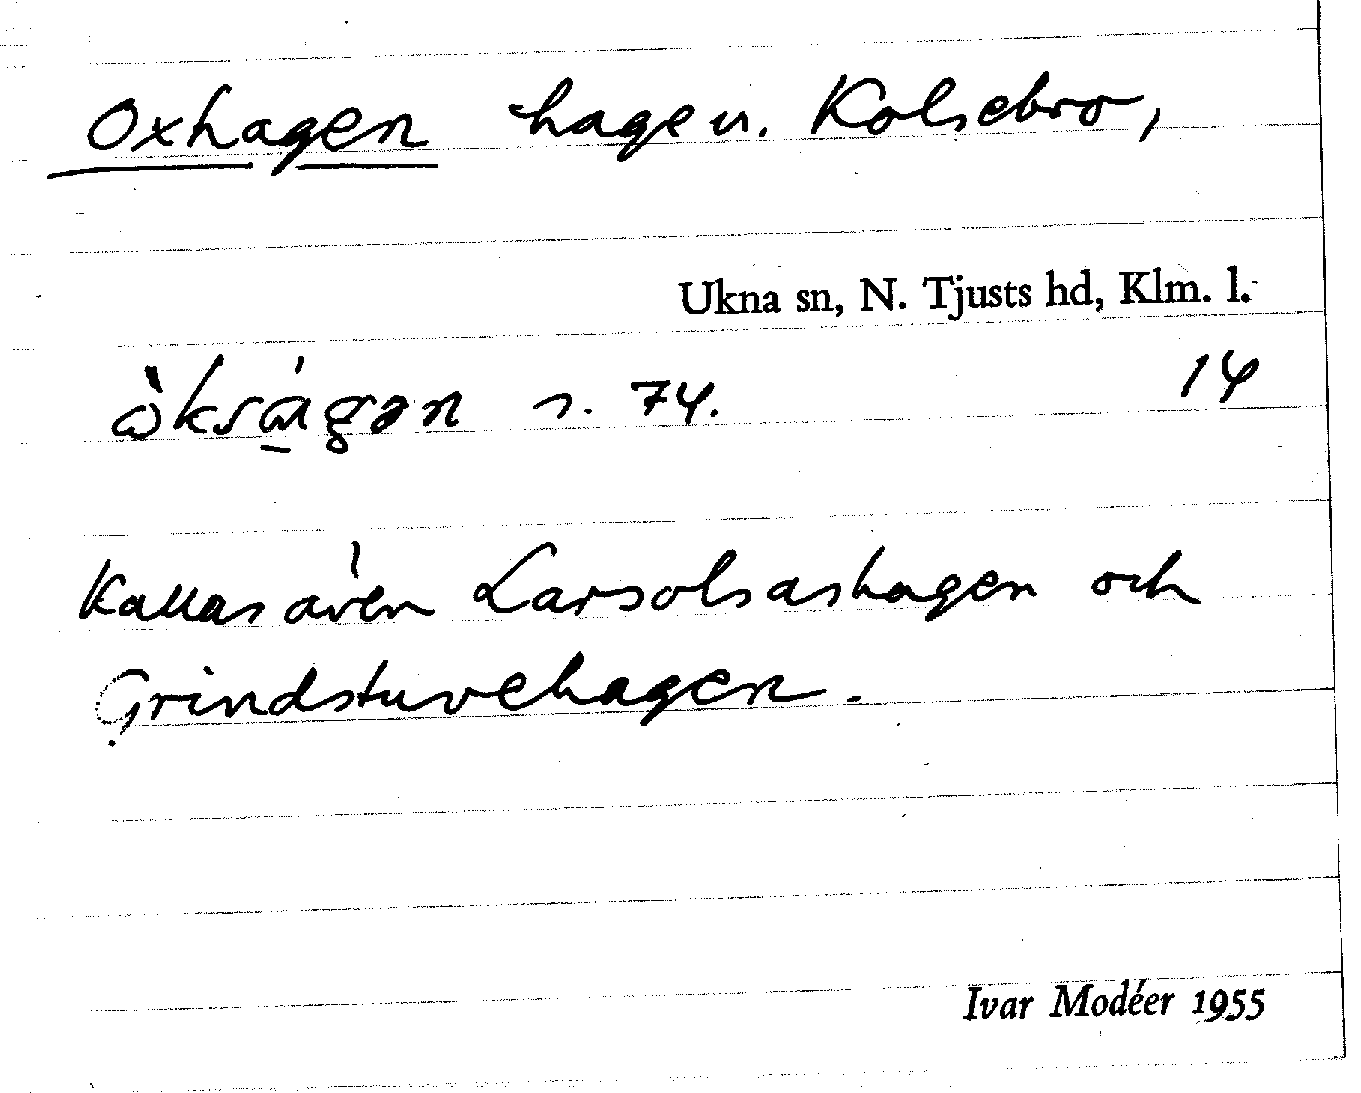 Oxhagen hage u. Kolsebro,
Ukna sn, N. Tjusts hd, Klm. l.
s. 74. 14
Kallas även Larsolsashagen och
Grindstuvehagen.
Ivar Modéer 1955